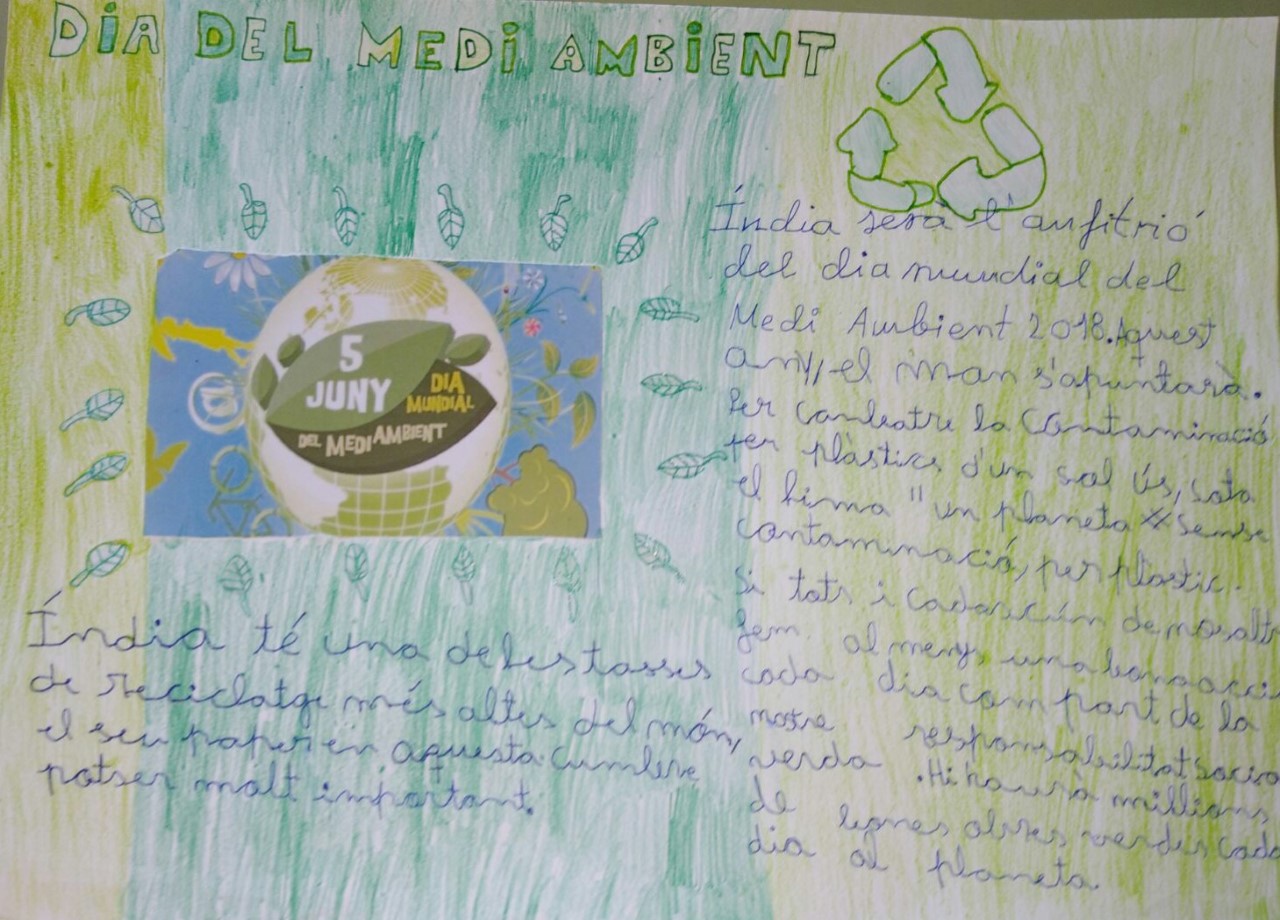 DIA DEL MEDI AMBIENT
5
JUNY
DIA
MUNDIAL
DEL MEDI AMBIENT
Índia té una deles tasses
de reciclatge més altes del món,
el seu paper en aquesta cumbre
potser molt important.
Índia serà l'anfitrió
del dia mundial del
Medi Ambient 2018. Aquest
any, el món s'apuntarà.
Per combatre la Contaminació
per plàstics d'un sol ús, sota
el lema "un planeta sense
contaminació, per plastic.
Si tots i cadascún de nosaltr
fem al menys una bona acci
cada dia com part de la
nostre responsabilitat socia
verda. Hi haurà millions
de bones obres verdes cada
dia al planeta